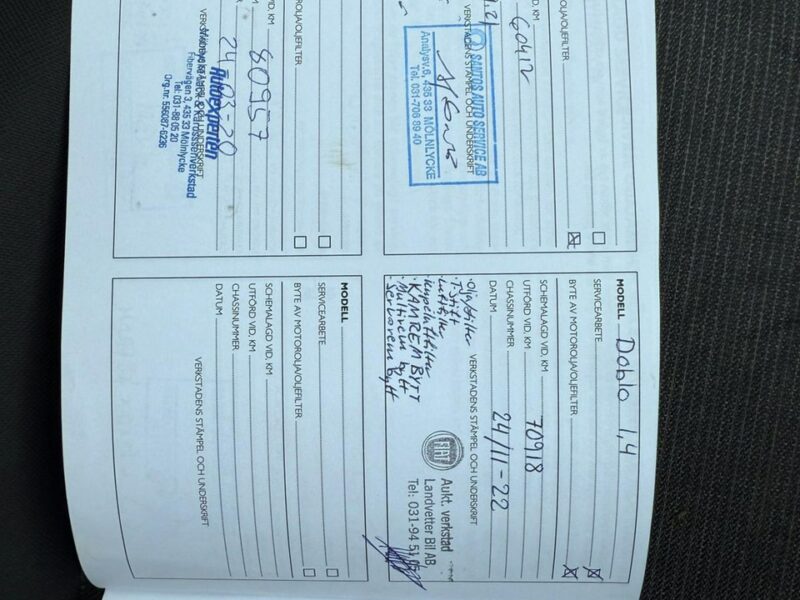 UTFÖRD VID. KM 60412
BYTE AV MOTOROLJA/OLJEFILTER
VERKSTADENS STÄMPEL OCH UNDERSKRIFT
SANTOS AUTO SERVICE AB
Analysv.6, 435 33 MÖLNLYCKE
Tel. 031-706 89 40
MODELL Doblo 1,4
SERVICEARBETE
BYTE AV MOTOROLJA/OLJEFILTER
SCHEMALAGD VID. KM
UTFÖRD VID. KM 70918
CHASSINUMMER
DATUM 24/11-22
VERKSTADENS STÄMPEL OCH UNDERSKRIFT
Olja/filter
Luftfilter
Kupeluftfilter
KAMREM BYTT
Multirem bytt
Servorem bytt
FIAT
Aukt. verkstad
Landvetter Bil AB
Tel: 031-94 51
BYTE AV MOTOROLJA/OLJEFILTER
VID. KM
80957
24-03-20
VERKSTADENS STÄMPEL OCH UNDERSKRIFT
Autoexperten
Mölnlycke Lack & Karosseriverkstad
Fibervägen 3, 435 33 Mölnlycke
Tel: 031-88 05 20
Org.nr. 556087-0236
MODELL
SERVICEARBETE
BYTE AV MOTOROLJA/OLJEFILTER
SCHEMALAGD VID. KM
UTFÖRD VID. KM
CHASSINUMMER
DATUM
VERKSTADENS STÄMPEL OCH UNDERSKRIFT